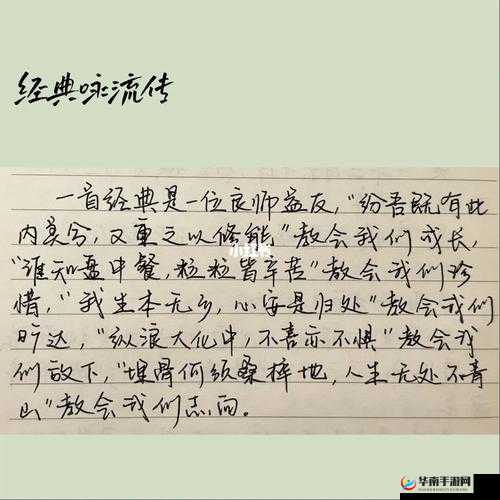 经典咏流传
一首经典是一位良师益友,"纷吾既有此
内美兮,又重之以修能"教会我们成长,
"谁知盘中餐,粒粒皆辛苦"教会我们珍
惜,"我生本无乡,心安是归处"教会我们
旷达,"纵浪大化中,不喜亦不惧"教会我
们放下,"埋骨何须桑梓地,人生无处不青
山"教会我们志向。
小红书
华南手游网